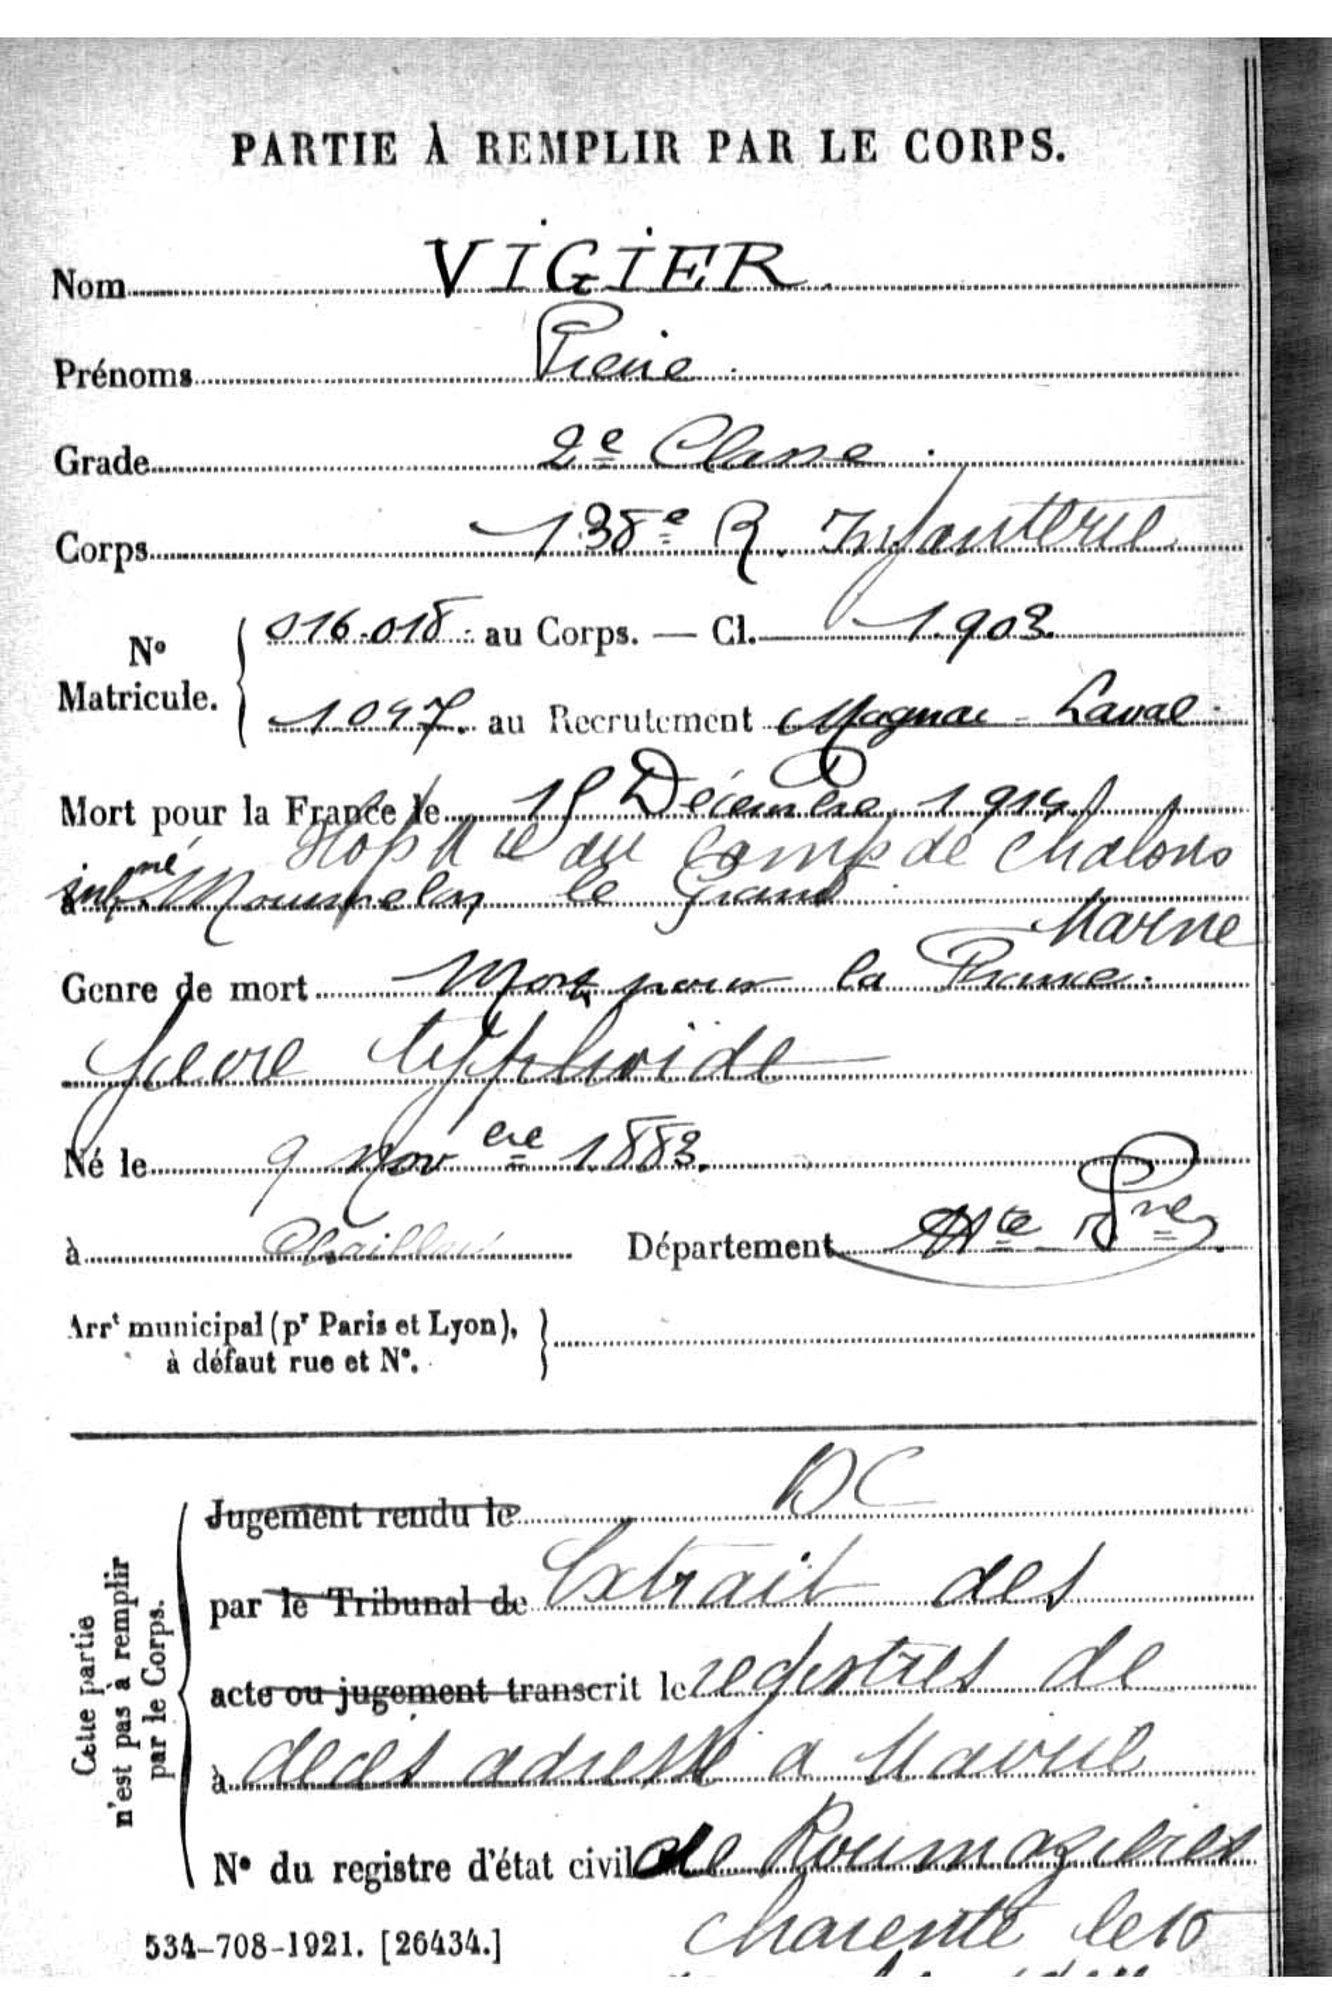 PARTIE À REMPLIR PAR LE CORPS.
Nom VIGIER.
Prénoms Pierre.
Grade 2e Classe.
Corps 138e R. Infanterie
No Matricule. 016.018. au Corps. — Cl. 1903.
1097. au Recrutement Magnac-Laval.
Mort pour la France le Décembre 1914
du Camp de Chalons
à Mourmelon le Grand
Marne
Genre de mort Mort pour la France.
fievre typhoïde
Né le 9 Nov bre 1883.
à Département Hte Vne
Arrt municipal (pr Paris et Lyon),
à défaut rue et No.
DC
Jugement rendu le
par le Tribunal de Extrait des
acte ou jugement transcrit le registres de
à deces adressé a Mairie
No du registre d'état civil de Roumazieres
Charente le 10
Cette partie
n'est pas à remplir
par le Corps.
534-708-1921. [26434.]